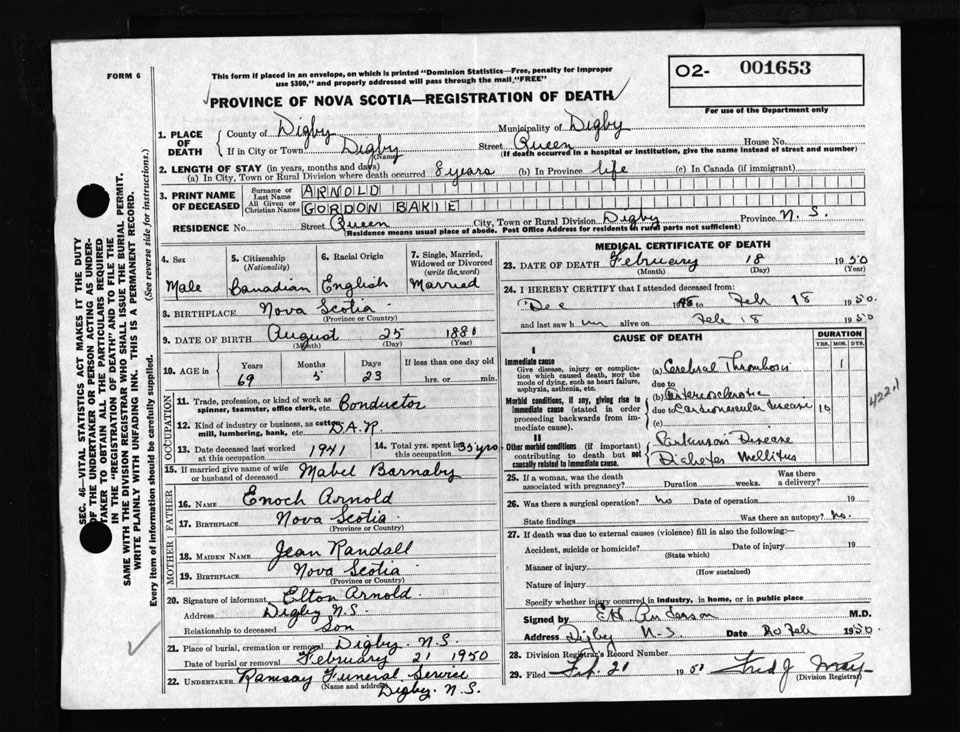 FORM 6
This form if placed in an envelope, on which is printed "Dominion Statistics—Free, penalty for improper
use $300," and properly addressed will pass through the mail "FREE"
O2- 001653
For use of the Department only
PROVINCE OF NOVA SCOTIA—REGISTRATION OF DEATH
1. PLACE OF DEATH
County of Digby Municipality of Digby
If in City or Town Digby (Name) Street Queen House No.
(If death occurred in a hospital or institution, give the name instead of street and number)
2. LENGTH OF STAY (in years, months and days)
(a) In City, Town or Rural Division where death occurred 8 years (b) In Province life (c) In Canada (if immigrant)
3. PRINT NAME OF DECEASED
Surname or Last Name ARNOLD
All Given or Christian Names GORDON BAKIE
RESIDENCE No. Street Queen City, Town or Rural Division Digby Province N.S.
(Residence means usual place of abode. Post Office Address for residents in rural parts not sufficient)
4. Sex 5. Citizenship (Nationality) 6. Racial Origin 7. Single, Married, Widowed or Divorced (write the word)
Male Canadian English Married
8. BIRTHPLACE Nova Scotia
(Province or Country)
9. DATE OF BIRTH August 25 1880
(Month) (Day) (Year)
10. AGE in Years Months Days If less than one day old
69 5 23 hrs. or min.
OCCUPATION
11. Trade, profession, or kind of work as spinner, teamster, office clerk, etc. Conductor
12. Kind of industry or business, as cotton mill, lumbering, bank, etc. D.A.R.
13. Date deceased last worked at this occupation 1941 14. Total yrs. spent in this occupation 35 yrs.
15. If married give name of wife or husband of deceased Mabel Barnaby
FATHER
16. NAME Enoch Arnold
17. BIRTHPLACE Nova Scotia
(Province or Country)
MOTHER
18. MAIDEN NAME Jean Randall
19. BIRTHPLACE Nova Scotia
(Province or Country)
20. Signature of informant Elton Arnold
Address Digby N.S.
Relationship to deceased Son
21. Place of burial, cremation or removal Digby. N.S.
Date of burial or removal February 21 1950
22. UNDERTAKER Ramsay Funeral Service
(Name and address) Digby. N.S.
MEDICAL CERTIFICATE OF DEATH
23. DATE OF DEATH February 18 1950
(Month) (Day) (Year)
24. I HEREBY CERTIFY that I attended deceased from:
Dec 1948 to Feb 18 1950.
and last saw him alive on Feb 18 1950
CAUSE OF DEATH
DURATION
YRS. MOS. DYS.
I
Immediate cause
Give disease, injury or complication which caused death, NOT the mode of dying, such as heart failure, asphyxia, asthenia, etc.
(a) Cerebral Thrombosis 1
due to
Morbid conditions, if any, giving rise to immediate cause (stated in order proceeding backwards from immediate cause).
(b) Arteriosclerotic
due to Cardiovascular disease 10
(c)
4221
II
Other morbid conditions (if important) contributing to death but not causally related to immediate cause.
Parkinson's Disease
Diabetes Mellitus
25. If a woman, was the death associated with pregnancy? Duration weeks. Was there a delivery?
26. Was there a surgical operation? no Date of operation 19
State findings Was there an autopsy? no.
27. If death was due to external causes (violence) fill in also the following:—
Accident, suicide or homicide? Date of injury 19
(State which)
Manner of injury
(How sustained)
Nature of injury
Specify whether injury occurred in industry, in home, or in public place
Signed by M.D.
Address Digby N.S. Date 20 Feb 1950.
28. Division Registrar's Record Number
29. Filed Feb. 20 1950 Fred J.
(Division Registrar)
SEC. 46—VITAL STATISTICS ACT MAKES IT THE DUTY
OF THE UNDERTAKER OR PERSON ACTING AS UNDERTAKER TO OBTAIN ALL THE PARTICULARS REQUIRED
IN THE "REGISTRATION OF DEATH" AND TO FILE THE
SAME WITH THE DIVISION REGISTRAR WHO SHALL ISSUE THE BURIAL PERMIT.
WRITE PLAINLY WITH UNFADING INK. THIS IS A PERMANENT RECORD.
Every item of information should be carefully supplied. (See reverse side for instructions.)